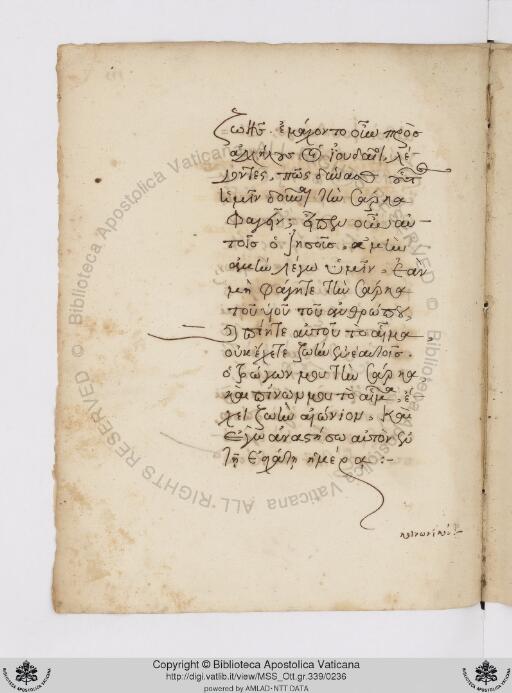 ζωῆς. ἐμάχοντο οὖν πρὸς
ἀλλήλους οἱ ἰουδαῖοι, λέ-
γοντες, πῶς δύναται οὗτος
ἡμῖν δοῦναι τὴν σάρκα
φαγεῖν; εἶπεν οὖν αὐ-
τοῖς ὁ ἰησοῦς, ἀμὴν
ἀμὴν λέγω ὑμῖν, ἐὰν
μὴ φάγητε τὴν σάρκα
τοῦ υἱοῦ τοῦ ἀνθρώπου,
καὶ πίητε αὐτοῦ τὸ αἷμα,
οὐκ ἔχετε ζωὴν ἐν ἑαυτοῖς.
ὁ τρώγων μου τὴν σάρκα,
καὶ πίνων μου τὸ αἷμα, ἔ-
χει ζωὴν αἰώνιον, καὶ
ἐγὼ ἀναστήσω αὐτὸν ἐν
τῇ ἐσχάτῃ ἡμέρᾳ:-
κοινωνικόν:-
Copyright © Biblioteca Apostolica Vaticana
http://digi.vatlib.it/view/MSS_Ott.gr.339/0236
powered by AMLAD-NTT DATA
© Biblioteca Apostolica Vaticana ALL RIGHTS RESERVED